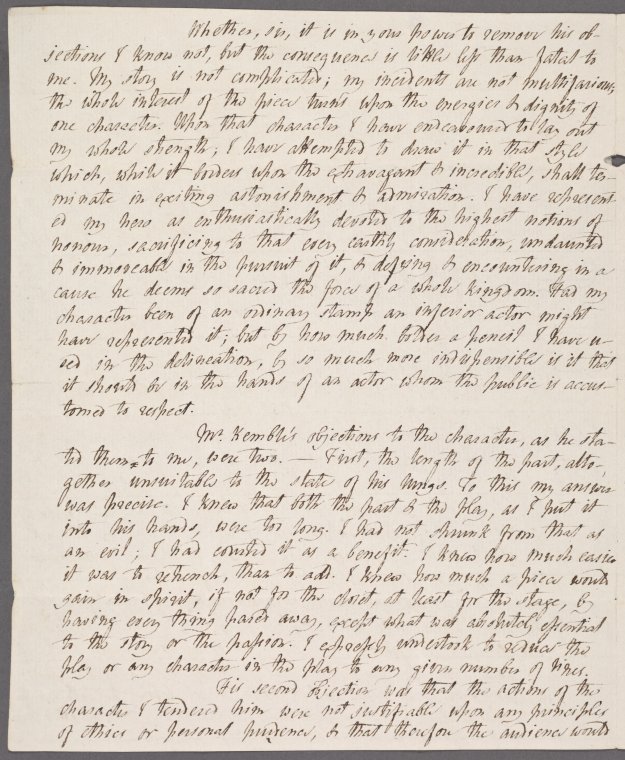 Whether, sir, it is in your power to remove his ob-
jections I know not, but the consequence is little less than fatal to
me. My story is not complicated; my incidents are not multifarious;
the whole interest of the piece turns upon the energies & dignity of
one character. Upon that character I have endeavoured to lay out
my whole strength; I have attempted to draw it in that style
which, while it borders upon the extravagant & incredible, shall ter-
minate in exciting astonishment & admiration. I have represent-
ed my hero as enthusiastically devoted to the highest notions of
honour, sacrificing to that every earthly consideration, undaunted
& immoveable in the pursuit of it, & defying & encountering in a
cause he deems so sacred the force of a whole kingdom. Had my
character been of an ordinary stamp an inferior actor might
have represented it; but by how much bolder a pencil I have u-
sed in the delineation, by so much more indispensible is it that
it should be in the hands of an actor whom the public is accus-
tomed to respect.
Mr. Kemble's objections to the character, as he sta-
ted them to me, were two. — First, the length of the part, alto-
gether unsuitable to the state of his lungs. To this my answer
was precise. I knew that both the part & the play, as I put it
into his hands, were too long. I had not shrunk from that as
an evil; I had courted it as a benefit. I knew how much easier
it was to retrench, than to add. I knew how much a piece would
gain in spirit, if not for the closet, at least for the stage, by
having every thing pared away, except what was absolutely essential
to the story or the passion. I expressly undertook to reduce the
play or any character in the play to any given number of lines.
His second objection was that the actions of the
character I tendered him were not justifiable upon any principles
of ethics or personal prudence, & that therefore the audience would